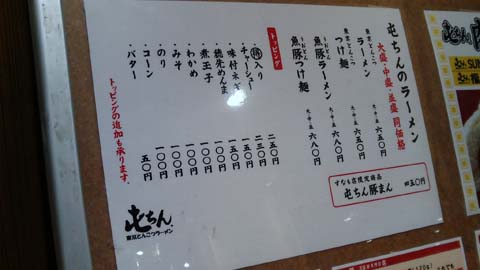 屯ちんのラーメン
大盛・中盛・並盛 同価格
東京とんこつ
ラーメン 大・中・並 六五〇円
東京とんこつ
つけ麺 大・中・並 六五〇円
うおとん
魚豚ラーメン 大・中・並 六八〇円
うおとん
魚豚つけ麺 大・中・並 六八〇円
トッピング
・得入り 二五〇円
・チャーシュー 二三〇円
・味付ネギ 一〇〇円
・穂先めんま 一〇〇円
・煮玉子 一〇〇円
・わかめ 一〇〇円
・みそ 一〇〇円
・のり 一〇〇円
・コーン
・バター 五〇円
トッピングの追加も承ります。
すなも店限定商品
屯ちん豚まん 四五〇円
屯ちん
東京とんこつラーメン
屯ちん
SUN